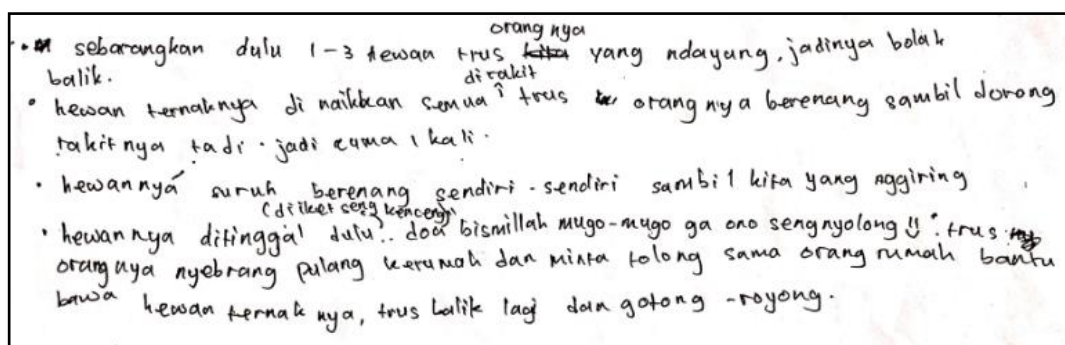 orangnya
• sebarangkan dulu 1-3 hewan trus kita yang ndayung, jadinya bolak
balik.
dirakit
• hewan ternaknya di naikkan semua trus orangnya berenang sambil dorong
rakitnya tadi. jadi cuma 1 kali.
• hewannya suruh berenang sendiri-sendiri sambil kita yang nggiring
(diiket seng kenceng)
• hewannya ditinggal dulu.. doa bismillah mugo-mugo ga ono sengnyolong !! trus
orangnya nyebrang pulang kerumah dan minta tolong sama orang rumah bantu
bawa hewan ternaknya, trus balik lagi dan gotong-royong.